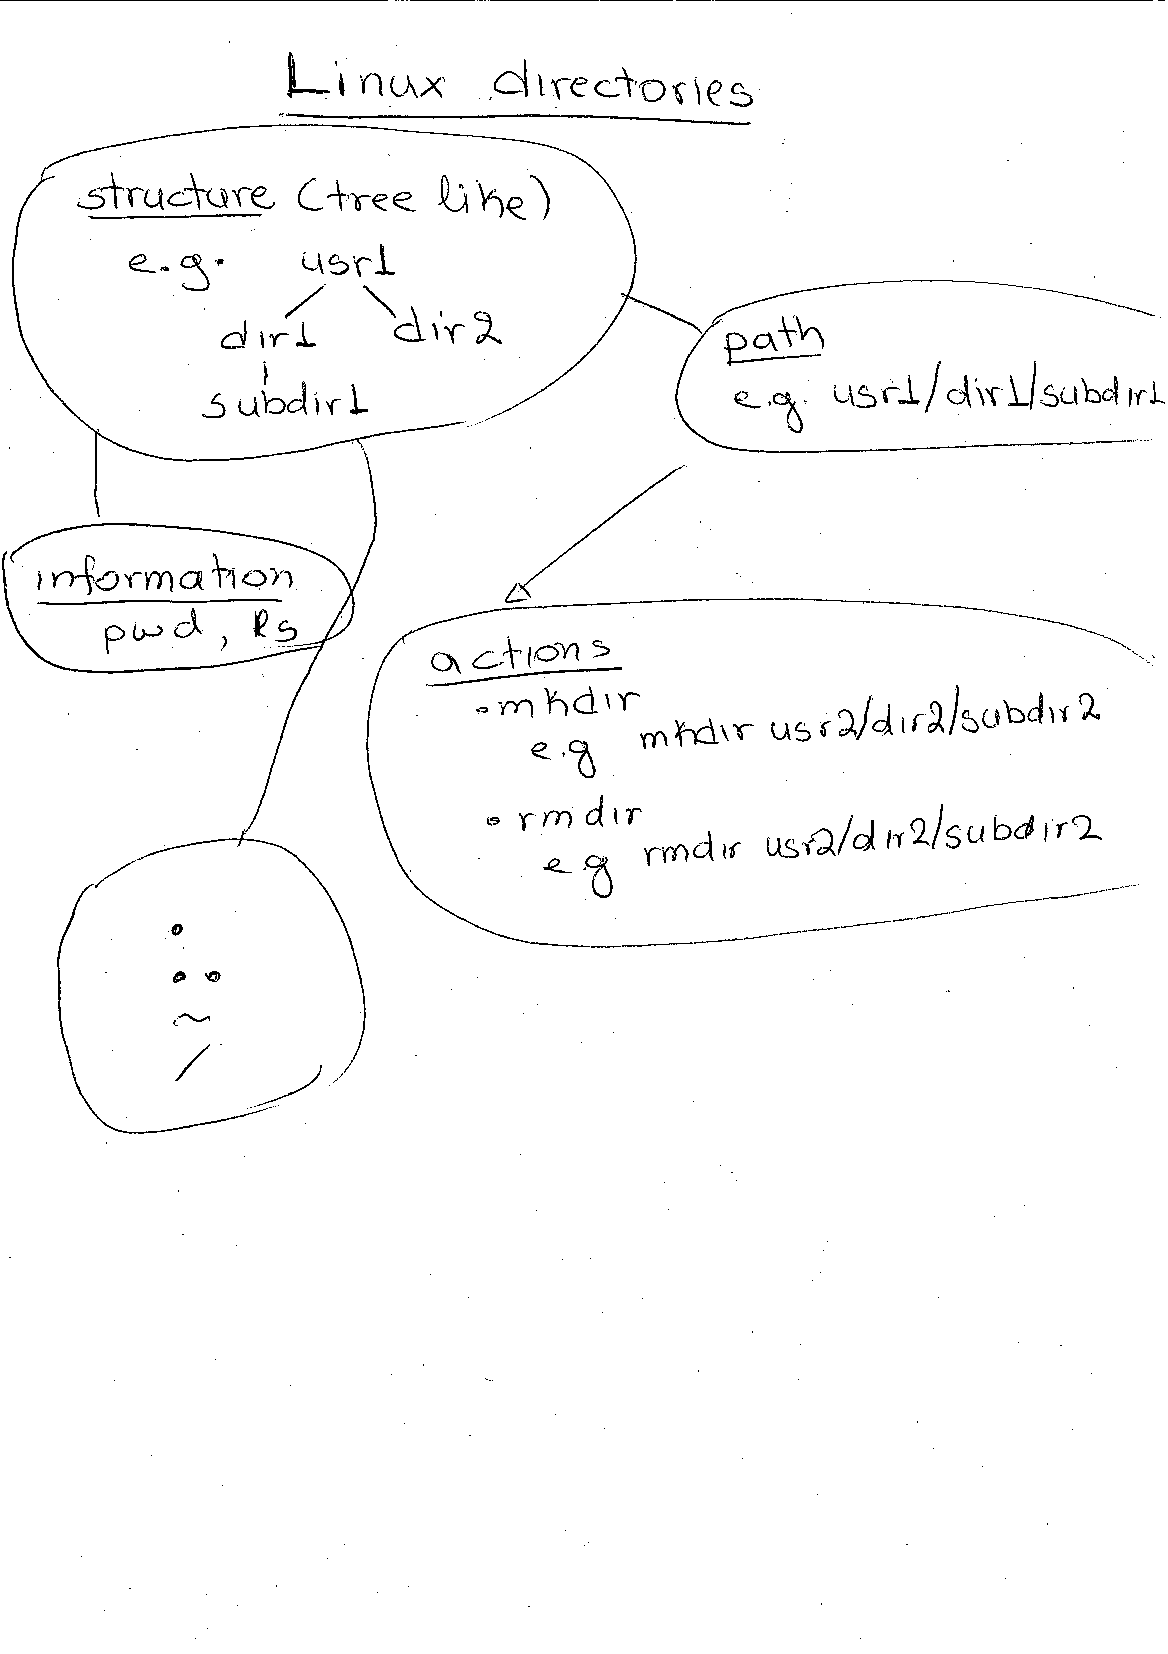 Linux directories
structure (tree like)
e.g. usr1
dir1 dir2
subdir1
path
e.g. usr1/dir1/subdir1
information
pwd, ls
actions
• mkdir
e.g mkdir usr2/dir2/subdir2
• rmdir
e g rmdir usr2/dir2/subdir2
.
..
~
/